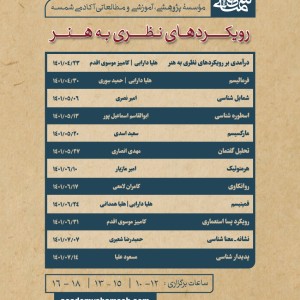 مؤسسهٔ پژوهشی، آموزشی و مطالعاتی آکادمی شمسه
رویکردهای نظری به هنر
درآمدی بر رویکردهای نظری به هنر | هلیا دارابی | کامبیز موسوی اقدم | ۱۴۰۱/۰۴/۲۳
فرمالیسم | هلیا دارابی | حمید سوری | ۱۴۰۱/۰۴/۳۰
شمایل شناسی | امیر نصری | ۱۴۰۱/۰۵/۰۶
اسطوره شناسی | ابوالقاسم اسماعیل پور | ۱۴۰۱/۰۵/۱۳
مارکسیسم | سعید اسدی | ۱۴۰۱/۰۵/۲۰
تحلیل گفتمان | مهدی انصاری | ۱۴۰۱/۰۵/۲۷
هرمنوتیک | امیر مازیار | ۱۴۰۱/۰۶/۱۰
روانکاوی | کامران لامعی | ۱۴۰۱/۰۶/۱۷
فمینیسم | هلیا دارابی | هلیا همدانی | ۱۴۰۱/۰۶/۲۴
رویکرد پسا استعماری | کامبیز موسوی اقدم | ۱۴۰۱/۰۶/۳۱
نشانه ـ معنا شناسی | حمیدرضا شعیری | ۱۴۰۱/۰۷/۰۷
پدیدار شناسی | مسعود علیا | ۱۴۰۱/۰۷/۱۴
ساعات برگزاری: ۱۲-۱۰ | ۱۵-۱۳ | ۱۸-۱۶